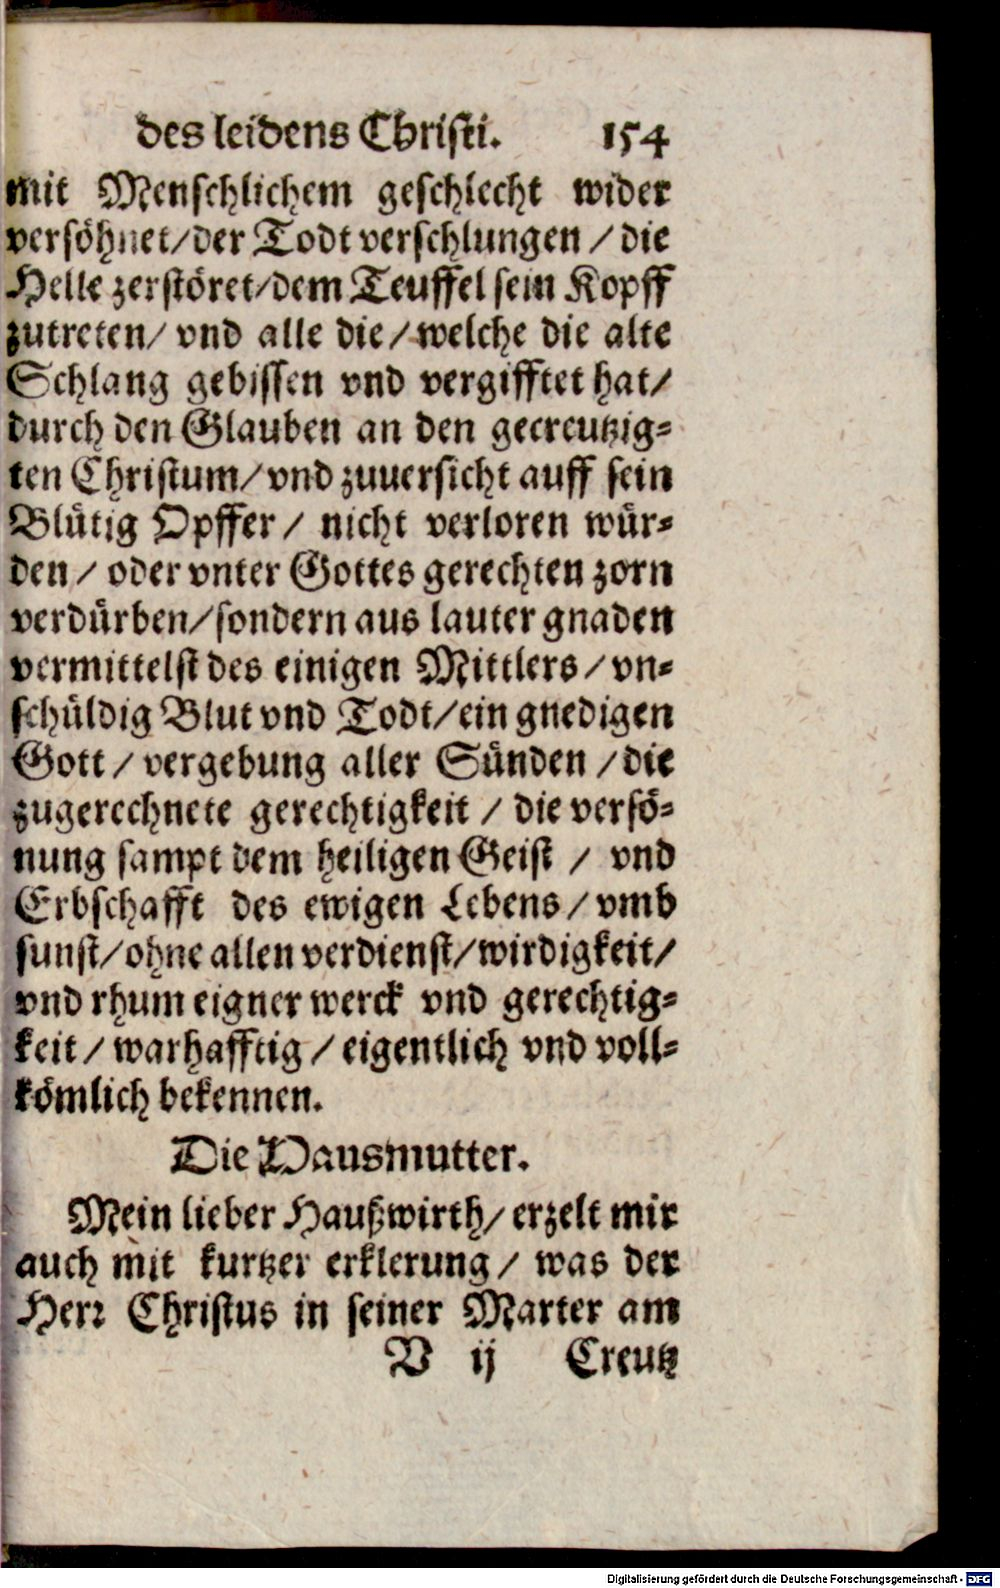 des leidens Christi. 154
mit Menschlichem geschlecht wider
versöhnet/der Todt verschlungen / die
Helle zerstöret/dem Teuffel sein Kopff
zutreten/ vnd alle die/welche die alte
Schlang gebissen vnd vergifftet hat/
durch den Glauben an den gecreutzig-
ten Christum/vnd zuuersicht auff sein
Blütig Opffer / nicht verloren wür-
den / oder vnter Gottes gerechten zorn
verdürben/sondern aus lauter gnaden
vermittelst des einigen Mittlers / vn-
schüldig Blut vnd Todt/ein gnedigen
Gott / vergebung aller Sünden / die
zugerechnete gerechtigkeit / die versö-
nung sampt dem heiligen Geist / vnd
Erbschafft des ewigen Lebens / vmb
sunst/ohne allen verdienst/wirdigkeit/
vnd rhum eigner werck vnd gerechtig-
keit / warhafftig / eigentlich vnd voll-
kömlich bekennen.
Die Hausmutter.
Mein lieber Haußwirth/ erzelt mir
auch mit kurtzer erklerung / was der
Herr Christus in seiner Marter am
V ij Creutz
Digitalisierung gefördert durch die Deutsche Forschungsgemeinschaft - DFG